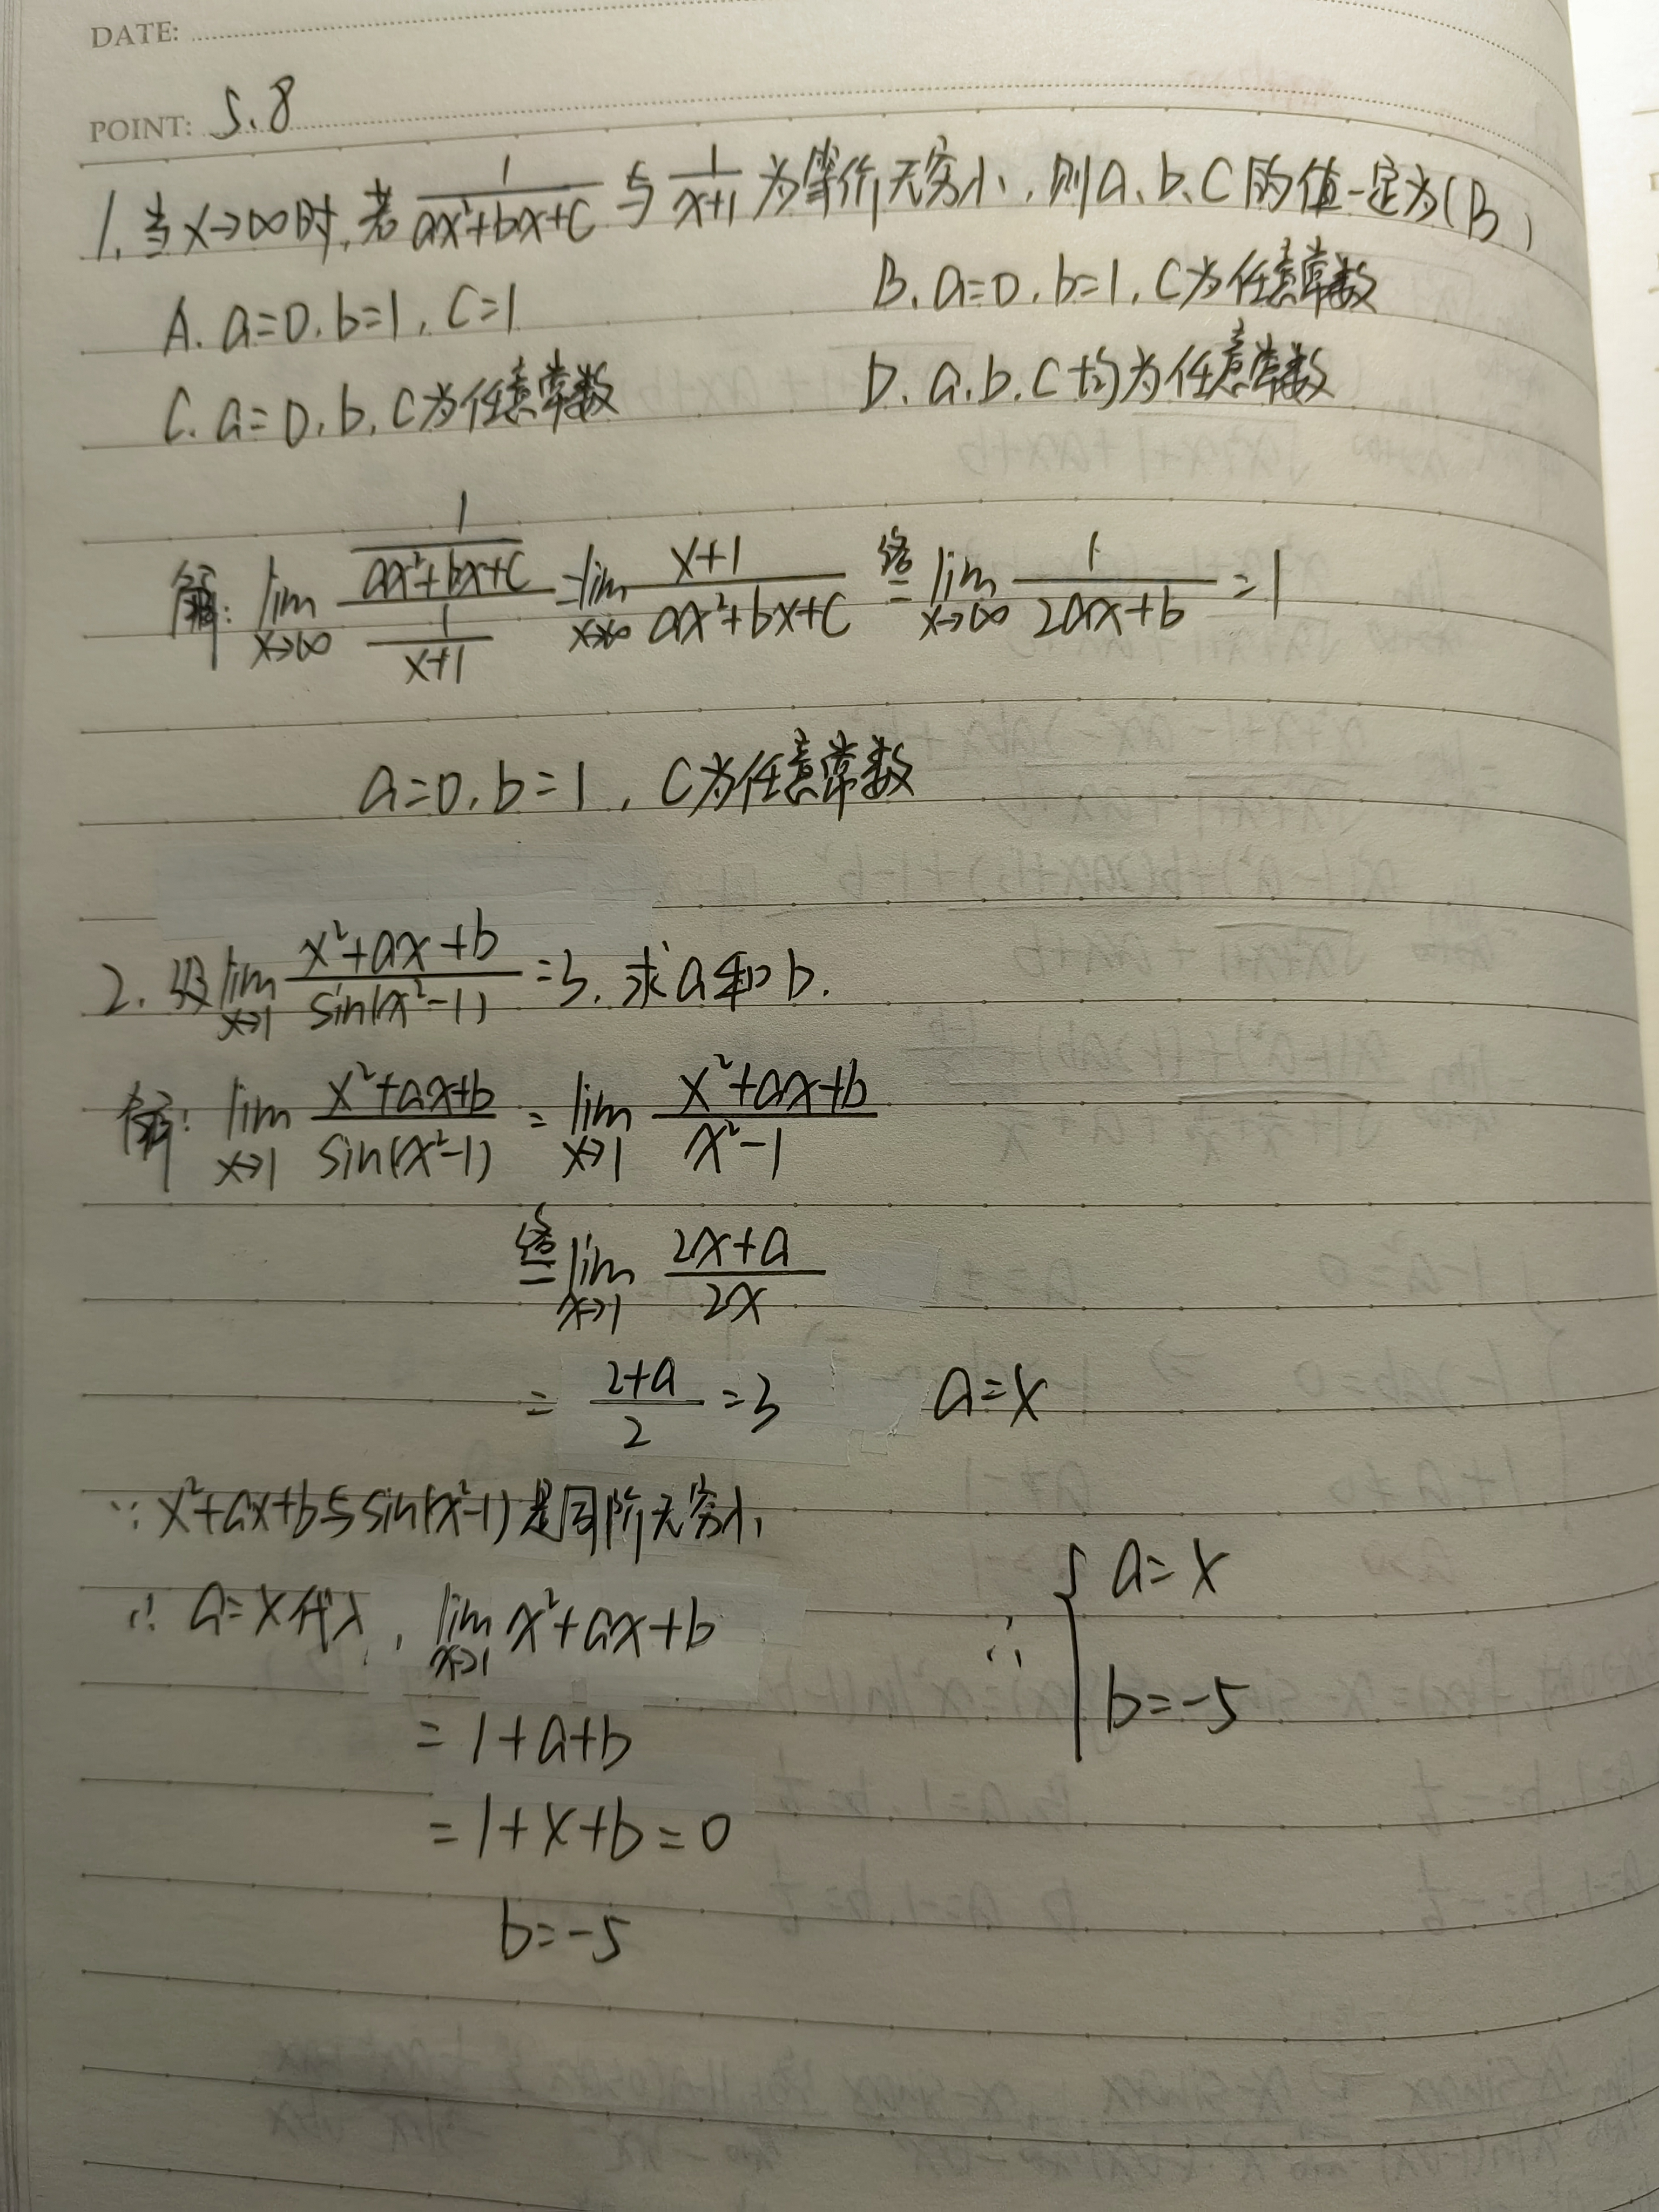 DATE:
POINT: 5.8
1. 当x→∞时,若 1/(ax²+bx+c) 与 1/(x+1) 为等价无穷小,则a、b、c的值一定为(B)
A. a=0, b=1, c=1 B. a=0, b=1, c为任意常数
C. a=0, b, c为任意常数 D. a, b, c均为任意常数
解: lim x→∞ (1/(ax²+bx+c))/(1/(x+1)) = lim x→∞ (x+1)/(ax²+bx+c) 洛= lim x→∞ 1/(2ax+b) =1
a=0, b=1, c为任意常数
2. 设 lim x→1 (x²+ax+b)/sin(x²-1) =3, 求a和b.
解: lim x→1 (x²+ax+b)/sin(x²-1) = lim x→1 (x²+ax+b)/(x²-1)
洛= lim x→1 (2x+a)/2x
= (2+a)/2 =3 a=x
∵ x²+ax+b与sin(x²-1)是同阶无穷小
∴ a=x代入, lim x→1 x²+ax+b
= 1+a+b
= 1+x+b=0
b=-5
∴ { a=x
b=-5